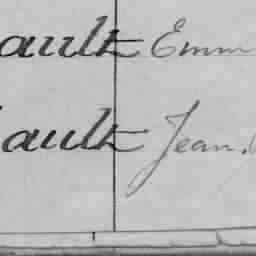 ault Emm
ault Jean